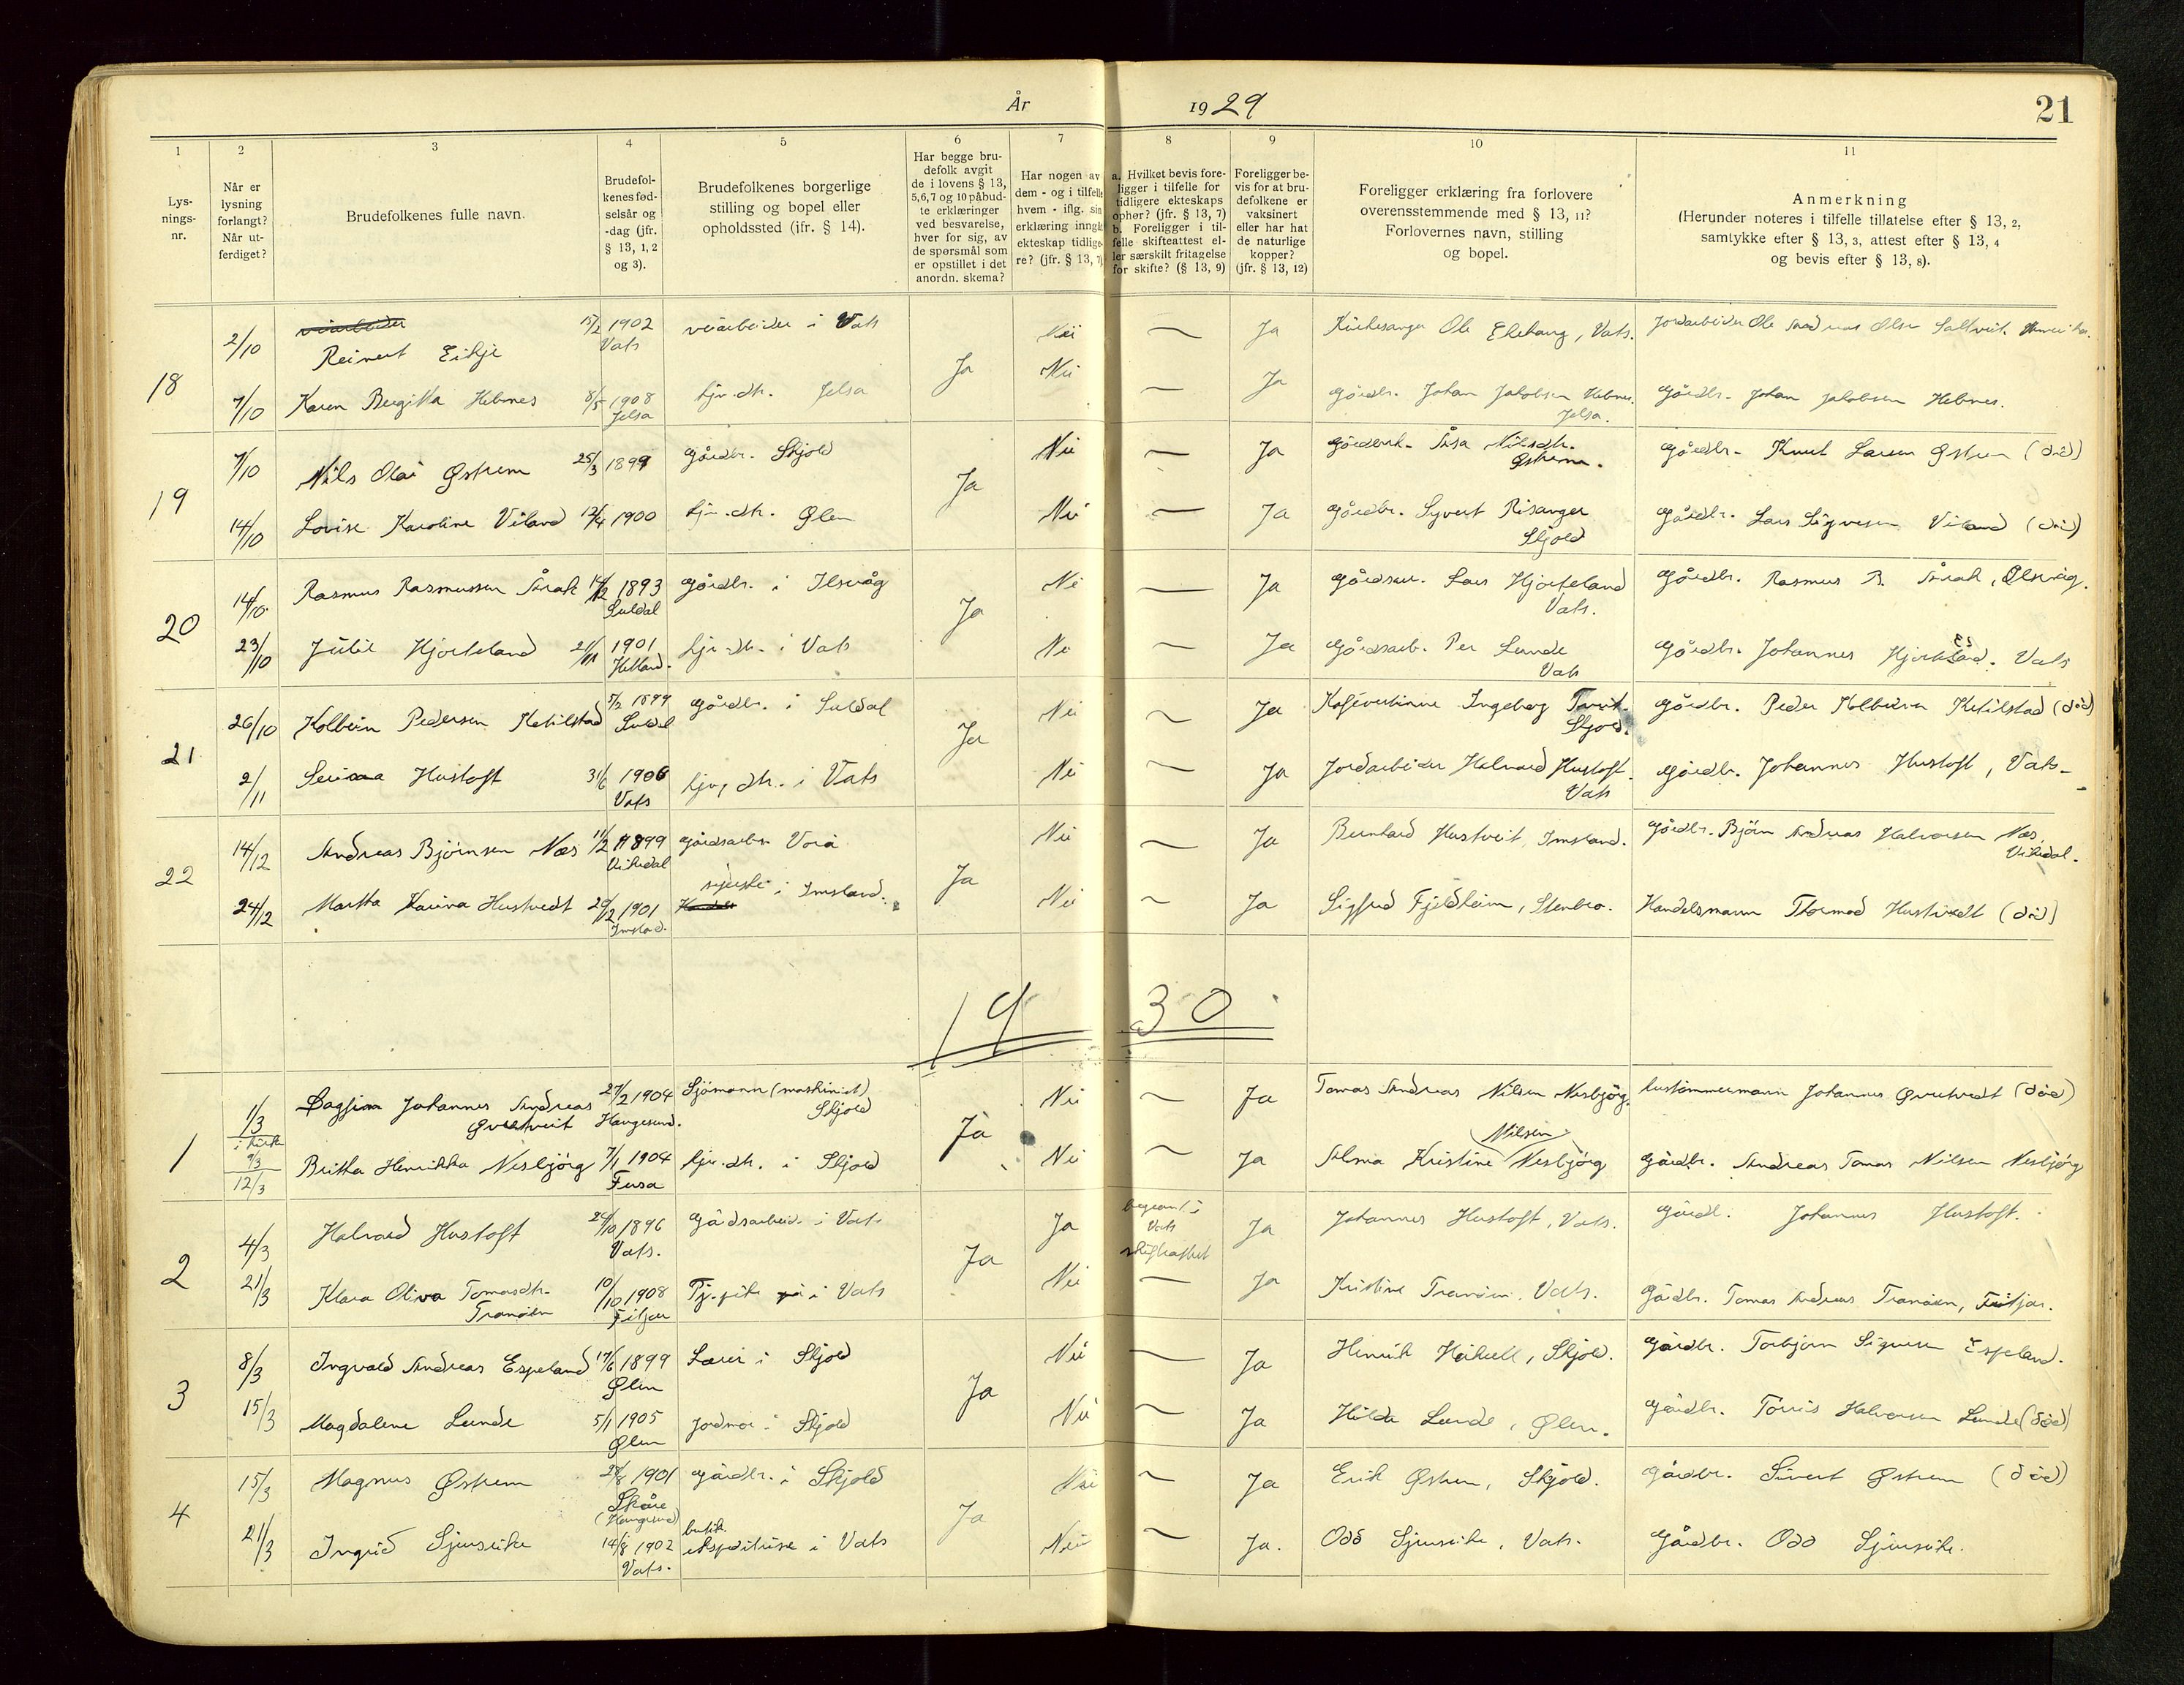 År 1929
21
1 2 3 4 5 6 7 8 9 10 11
Lys-
nings-
nr.
Når er
lysning
forlangt?
Når ut-
ferdiget?
Brudefolkenes fulle navn.
Brudefol-
kenes fød-
selsår og
-dag (jfr.
§ 13, 1, 2
og 3).
Brudefolkenes borgerlige
stilling og bopel eller
opholdssted (jfr. § 14).
Har begge bru-
defolk avgit
de i lovens § 13,
5,6,7 og 10 påbud-
te erklæringer
ved besvarelse,
hver for sig, av
de spørsmål som
er opstillet i det
anordn. skema?
Har nogen av
dem - og i tilfelle
hvem - iflg. sin
erklæring inngått
ekteskap tidlige-
re? (jfr. § 13, 7)
a. Hvilket bevis fore-
ligger i tilfelle for
tidligere ekteskaps
ophør? (jfr. § 13, 7)
b. Foreligger i til-
felle skifteattest el-
ler særskilt fritagelse
for skifte? (§ 13, 9)
Foreligger be-
vis for at bru-
defolkene er
vaksinert
eller har hat
de naturlige
kopper?
(jfr. § 13, 12)
Foreligger erklæring fra forlovere
overensstemmende med § 13, 11?
Forlovernes navn, stilling
og bopel.
Anmerkning
(Herunder noteres i tilfelle tillatelse efter § 13, 2,
samtykke efter § 13, 3, attest efter § 13, 4
og bevis efter § 13, 8).
18 2/10 veiarbeider Reinert Eikje 15/2 1902 Vats veiarbeider i Vats Ja Nei — Ja Kirkesanger Ole Ekehaug, Vats. Jordarbeider Ole Andreas Olsen
7/10 Karen Bergitta Hebnes 8/5 1908 Jelsa hjv. dtr. Jelsa Nei — Ja Gårdbr. Johan Jakobsen Hebnes. Jelsa. Gårdbr. Johan Jakobsen Hebnes.
19 7/10 Nils Olai Østrem 25/3 1899 Gårdbr. Skjold Ja Nei — Ja Nilsdtr. Østrem. Gårdbr. Knut Larsen Østrem (død)
14/10 Lovise Karoline Viland 12/4 1900 hjv. dtr. Ølen Nei — Ja Gårdbr. Syvert Risanger Skjold Gårdbr. Lars Sigvesen Viland (død)
20 14/10 Rasmus Rasmussen 14/12 1893 Suldal Gårdbr. i Ilsvåg Ja Nei — Ja Lars Hjorteland Vats. Gårdbr. Rasmus R.
23/10 Julie Hjorteland 21/11 1901 hjv. dtr. i Vats Nei — Ja Gårdsarb. Per Lunde Vats Gårdbr. Johannes Hjorteland. Vats
21 26/10 Kolbein Pedersen Ketilstad 5/2 1899 Suldal Gårdbr. i Suldal Ja Nei — Ja Kafévertinne Ingeborg Skjold. Gårdbr. Peder Kolbeinsen Ketilstad (død)
2/11 Serina Hustoft 3/6 1906 Vats hjv. dtr. i Vats Nei — Ja Jordarbeider Halvard Hustoft. Vats Gårdbr. Johannes Hustoft, Vats.
22 14/12 Andreas Bjørnsen Næs 11/2 1899 Vikedal Gårdsarbr. Ja Nei — Ja Bernhard Hustveit, Imsland. Gårdbr. Bjørn Andreas Halvorsen Næs, Vikedal.
24/12 Martha Karina Hustvedt 29/12 1901 Imsland. syerske i Imsland. Nei — Ja Sigfred Fjeldheim, Stenbro. Handelsmann Thormod Hustvedt (død)
1930
1 1/3 9/3 12/3 Dagfinn Johannes Andreas Øvretveit 27/2 1904 Haugesund. Sjømann (maskinist) Skjold Ja Nei — Ja Tomas Andreas Nilsen Nesbjørg. Johannes Øvretvedt (død)
Britha Henrikka Nesbjørg 7/1 1904 Fusa hjv. dtr. i Skjold Nei — Ja Alma Kristine Nilsen Nesbjørg Gårdbr. Andreas Tomas Nilsen Nesbjørg
2 4/3 Halvard Hustoft 24/10 1896 Vats. Gårdsarbeid. i Vats Ja Ja Vats skifteattest Ja Johannes Hustoft, Vats. Gårdb. Johannes Hustoft.
21/3 Klara Oliva Tomasdtr. Tranøien 10/10 1908 Fitjar Tj. pike i Vats Nei — Ja Kristine Tranøien. Vats. Gårdbr. Tomas Andreas Tranøien, Fitjar.
3 8/3 Ingvald Andreas Espeland 17/6 1899 Ølen Lærer i Skjold Ja Nei — Ja Henrik, Skjold. Gårdbr. Torbjørn Sigvesen Espeland.
15/3 Magdalene Lunde 5/1 1905 Ølen Jordmor i Skjold Nei — Ja Hilda Lunde, Ølen. Gårdbr. Tørris Halvorsen Lunde (død)
4 15/3 Magnus Østrem 28/8 1901 Skåre (Haugesund) Gårdbr. i Skjold Ja Nei — Ja Erik Østrem, Skjold. Gårdbr. Sivert Østrem (død)
21/3 Ingrid Sjurseike 14/8 1902 Vats. butik. ekspeditrise i Vats Nei — Ja. Odd Sjurseike, Vats. Gårdbr. Odd Sjurseike.